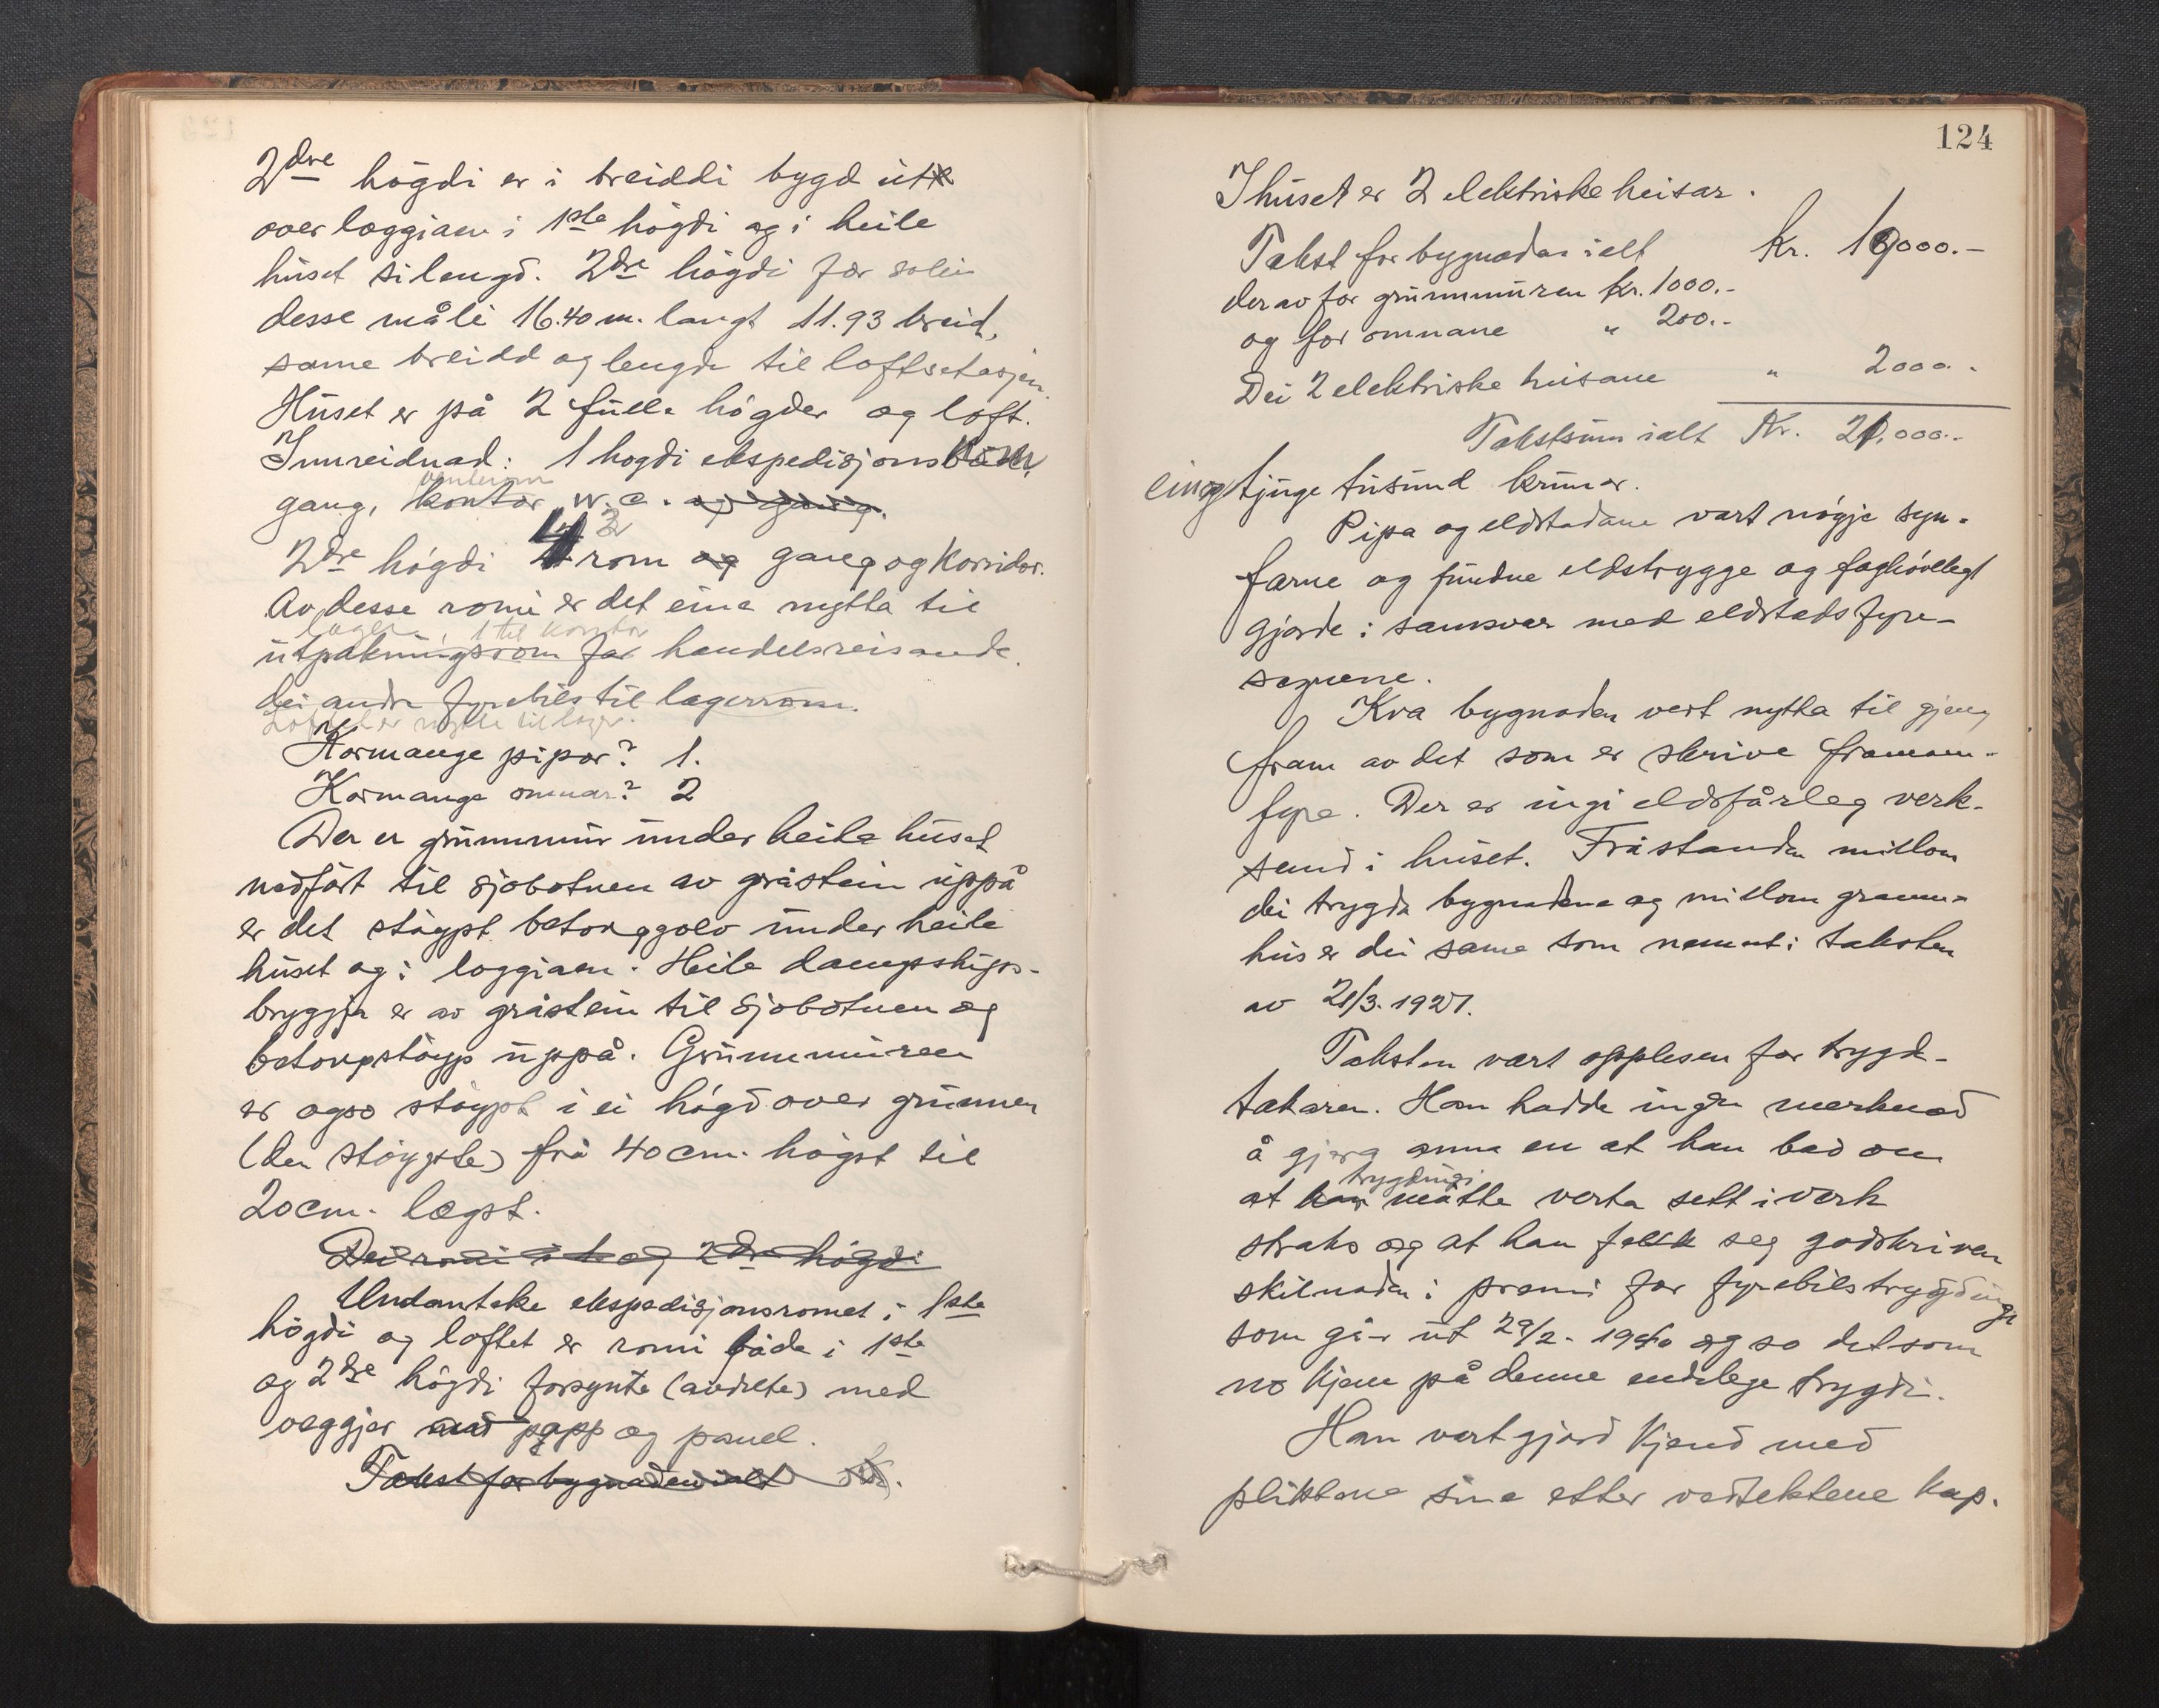 2dre högdi er i breiddi bygd ut
over loggiaen i 1ste högdi og i heile
huset si lengd. 2dre högdi får soleis
desse måli 16.40 m. langt 11.93 breid,
same breidd og lengde til loftsetasjen
Huset er på 2 fulle högder og loft.
Innreidnad: 1 hogdi ekspedisjonsrom,
venterom
gang, kontor w.c. og gang.
4 2
2dre högdi rom og gang og Korridor.
Av desse romi er det eine nytta til
lager, 1 til kontor
utpakningsrom for handelsreisande.
dei andre fyrebils til lagerrom.
Loftet er nytta til lager.
Kormange pipor? 1.
Kormange omnar? 2
Der er grunnmur under heile huset
nedfört til sjobotnen av gråstein uppå
er det stöypt betonggolv under heile
huset og i loggiaen. Heile dampskips-
bryggja er av gråstein til sjobotnen og
betongstöyp uppå. Grunnmuren
er ogso stöypt i ei högd over grunnen
(den stöypte) frå 40 cm. högst til
20 cm. lægst.
Dei romi i 1ste og 2dre högdi
Undanteke ekspedisjonsromet i 1ste
högdi og loftet er romi både i 1ste
og 2dre högdi forsynte (avdelte) med
veggjer med papp og panel.
Takst for bygnaden ialt Kr.
124
I huset er 2 elektriske heisar.
Takst for bygnaden ialt Kr. 19000.-
derav for grunnmuren kr. 1000.-
og for omnane " 200.-
Dei 2 elektriske heisane " 2000.-
Takstsum ialt Kr. 21.000.-
einogtjuge tusund krunor.
Pipa og eldstadane vart nögje syn-
farne og fundne eldstrygge og faghövelegt
gjorde i samsvar med eldstadsfyre-
segnene.
Kva bygnaden vert nytta til gjeng
fram av det som er skrive framan-
fyre. Der er ingi eldsfårleg verk-
semd i huset. Fråstanden millom
dei trygda bygnadene og millom grann-
hus er dei same som nemnt i taksten
av 21/3. 1927.
Taksten vart opplesen for trygd-
takaren. Han hadde ingen merknad
å gjera anna en at han bad om
trygdingi
at han måtte verta sett i verk
straks og at han fekk seg godskriven
skilnaden i premi for fyrebilstrygdingi
som går ut 29/2. 1940 og so det som
no kjem på denne endelege trygdi.
Han vart gjord kjend med
pliktene sine etter vedtektene kap.